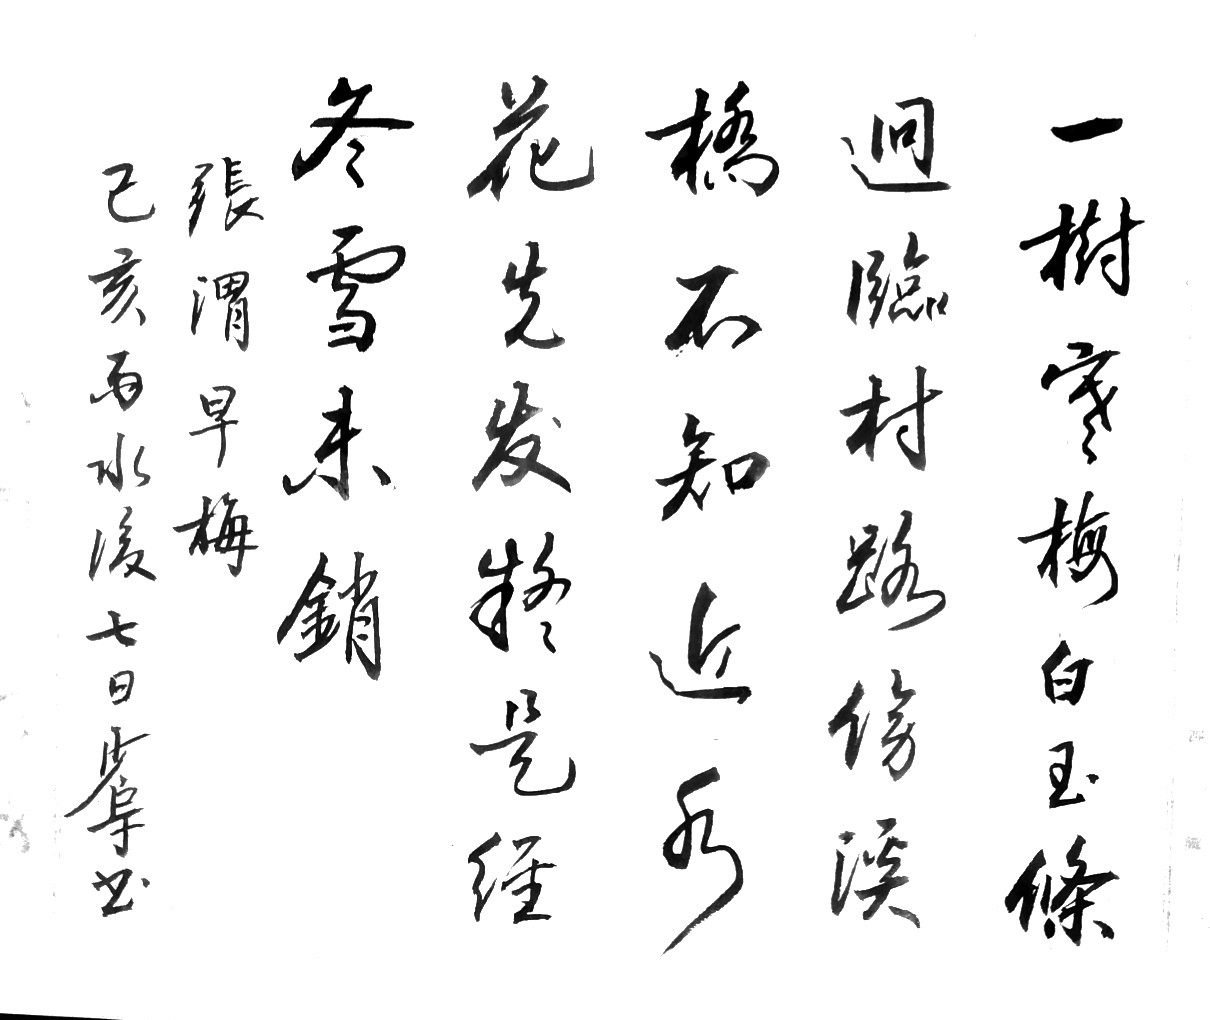 一樹寒梅白玉條
迥臨村路傍溪
橋不知近水
花先发疑是經
冬雪未銷
張渭早梅
己亥雨水後七日 书